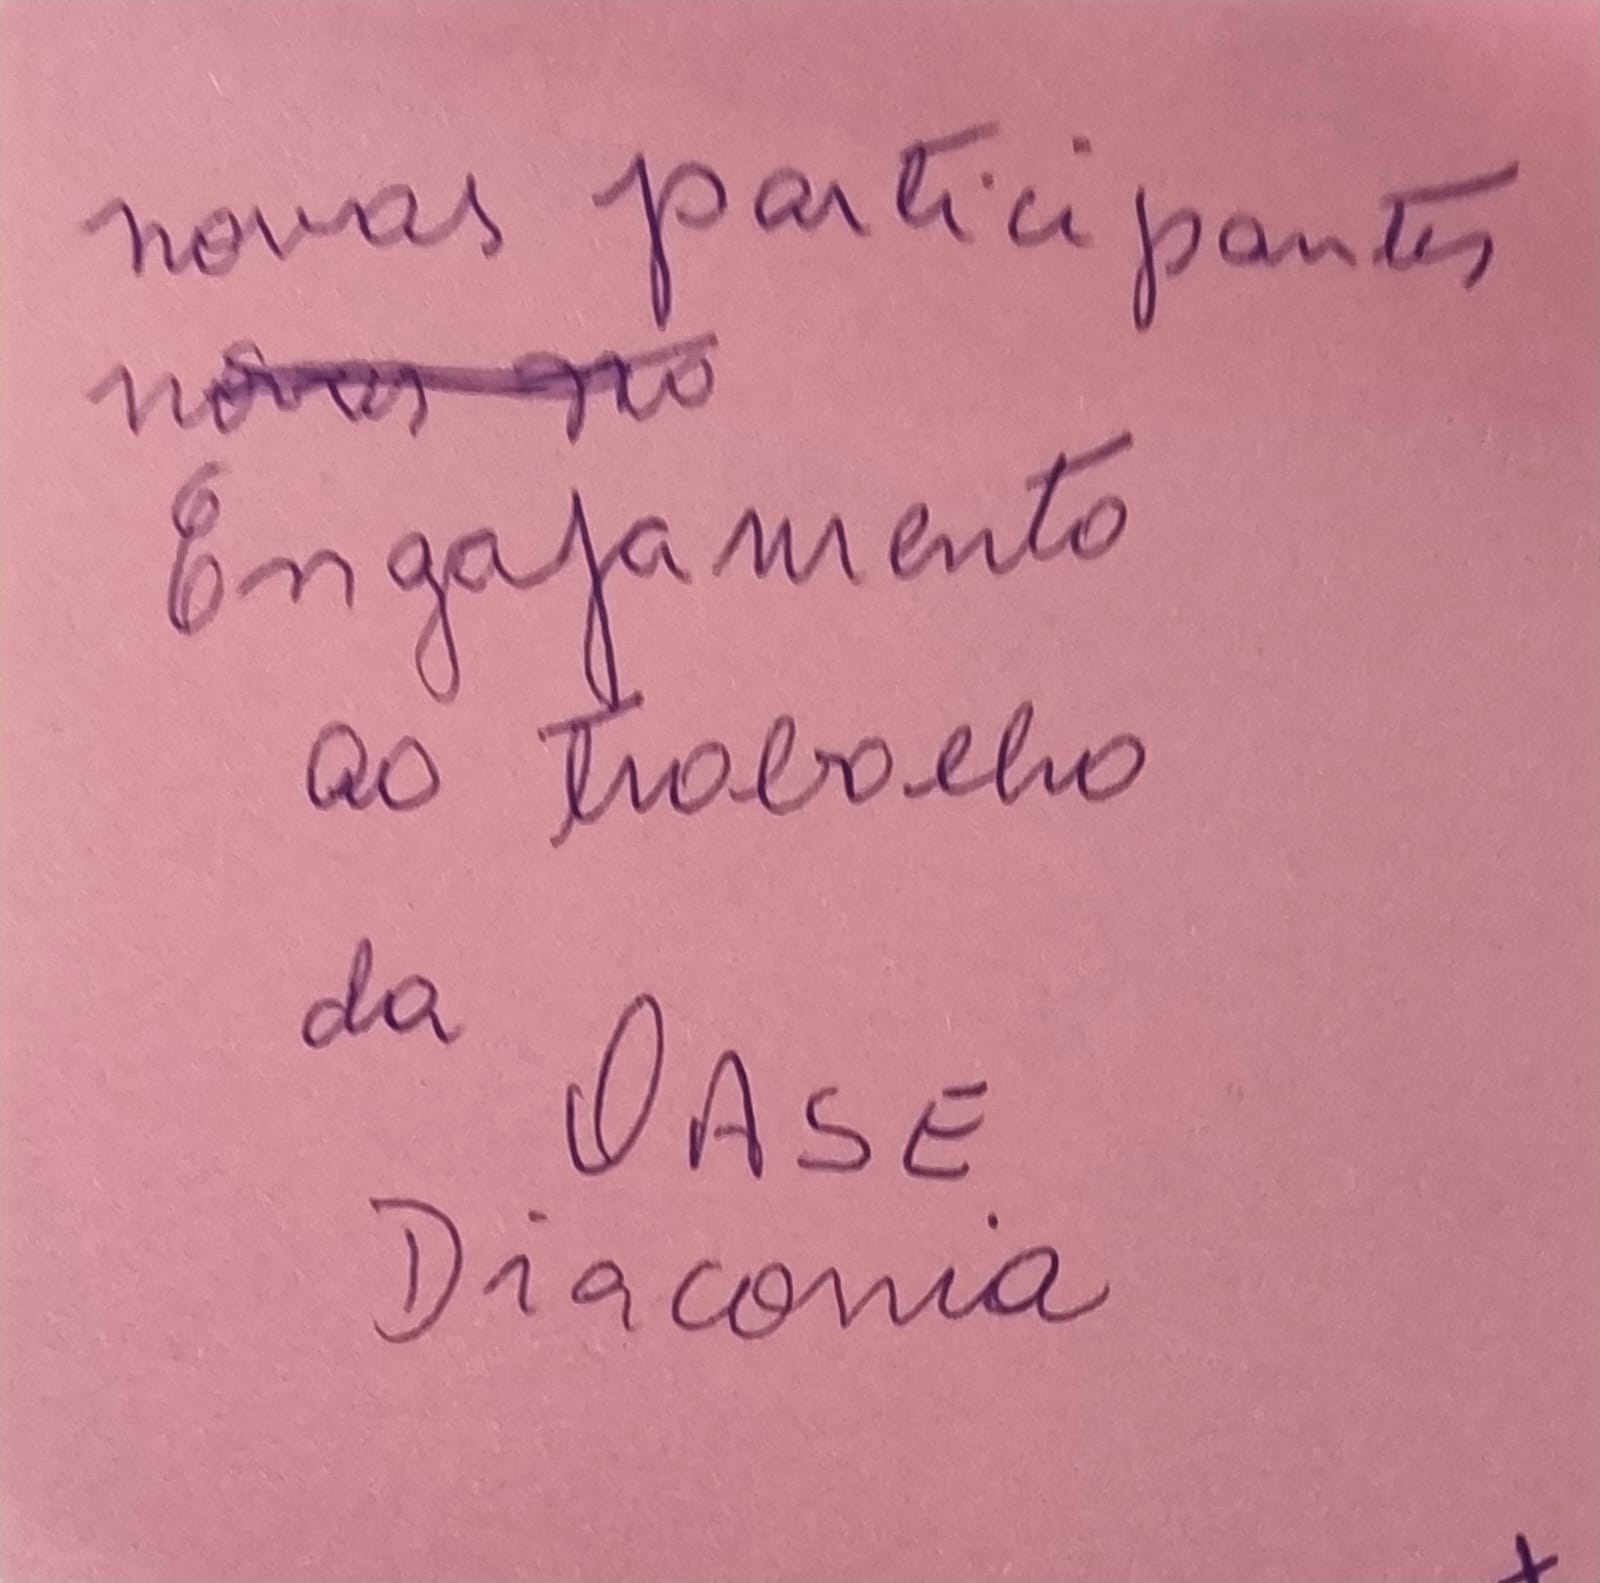 novas participantes
Engajamento
ao trabalho
da
OASE
Diaconia